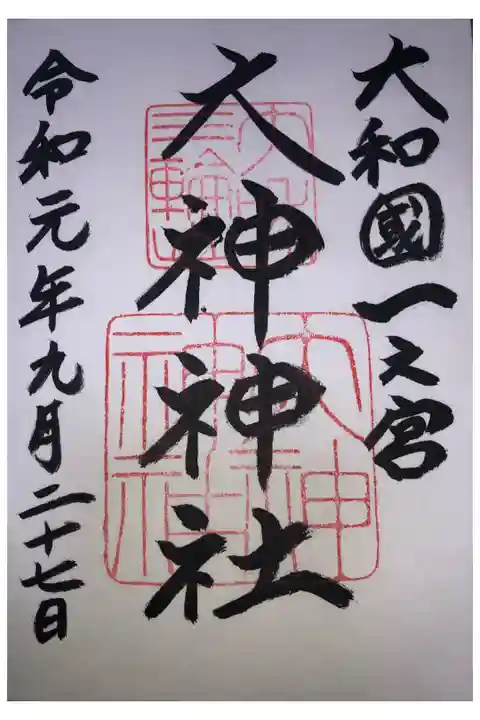 大和國一之宮
大神神社
令和元年九月二十七日
大神神社